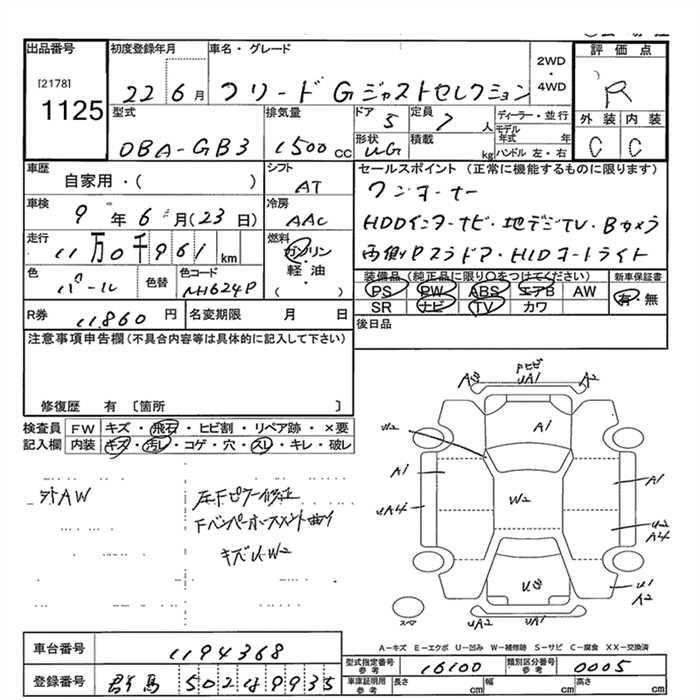 出品番号 初度登録年月 車名・グレード 2WD・4WD 評価点
[2178]
1125 22 6月 フリード G ジャストセレクション R
型式 排気量 ドア 5 定員 7人 ディーラー・並行 外装 内装
DBA-GB3 1500cc 形状 UG 積載 kg モデル年式 年 ハンドル 左・右 C C
車歴 自家用・( ) シフト AT セールスポイント (正常に機能するものに限ります)
ワンオーナー
車検 9年6月(23日) 冷房 AAC HDDインターナビ・地デジTV・Bカメラ
走行 11万0千961km 燃料 ガソリン・軽油・( ) 両側Pスラドア・HIDオートライト
色 パール 色替 色コード NH624P 装備品 (純正品に限り〇をつけてください) 新車保証書
PS PW ABS エアB AW 有・無
SR ナビ TV カワ
R券 11,860円 名変期限 月 日 後日品
注意事項申告欄 (不具合内容等は具体的に記入して下さい)
修復歴 有 〔箇所 〕
検査員 FW キズ・飛石・ヒビ割・リペア跡・×要
記入欄 内装 キズ・汚レ・コゲ・穴・スレ・キレ・破レ
社外AW
左Fピラー修正
Fバンパーホースメント曲り
キズ U・W2
Pヒビ
UA1
A2
A1
W2
A1
UA4
W2
A1
U2
A4
U1
A2
US
UA2
UA1
スペア
A-キズ E-エクボ U-凹み W-補修跡 S-サビ C-腐食 XX-交換済
車台番号 1194368
型式指定番号 参考 16100 類別区分番号 参考 0005
登録番号 群馬 502 は 9935
車庫証明用 参考 長さ cm 幅 cm 高さ cm